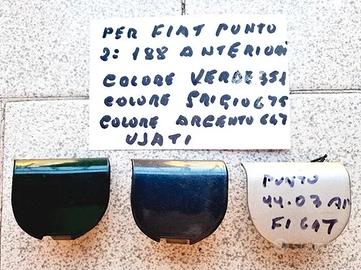 PER FIAT PUNTO
2: 188 ANTERIORI
COLORE VERDE 351
COLORE GRIGIO 675
COLORE ARGENTO 647
USATI
PUNTO
44.03 AN
FIAT